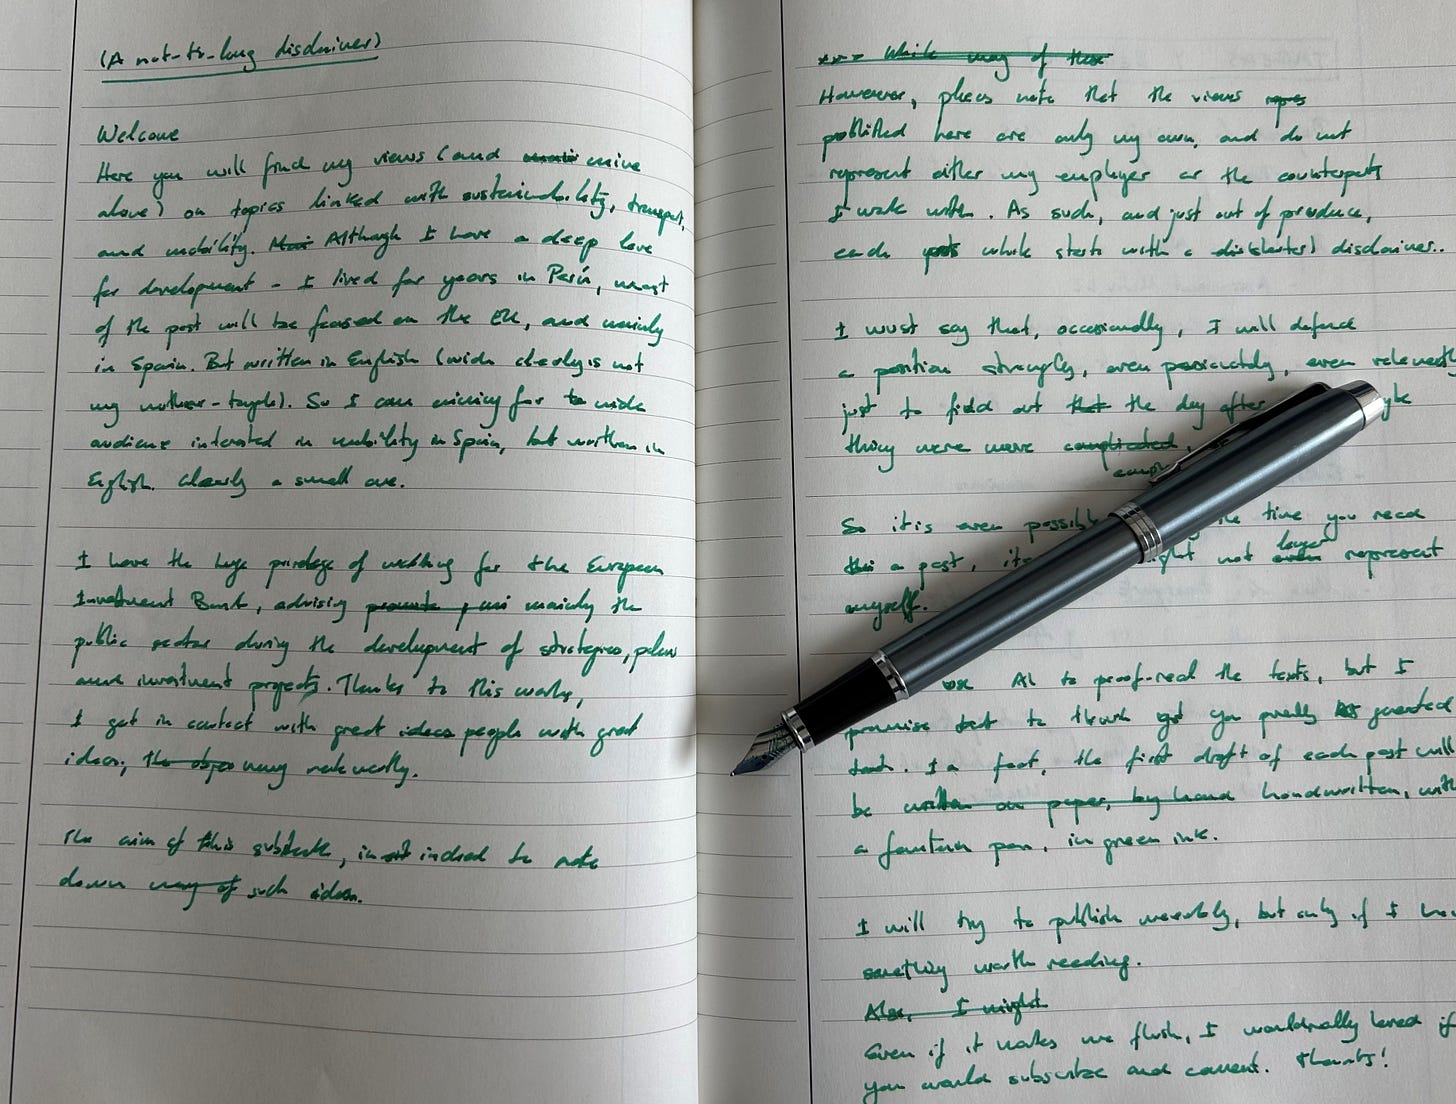 (A not-to-long disclaimer)
Welcome
Here you will find my views (and mine
alone) on topics linked with sustainability, transport,
and mobility. Although I have a deep love
for development - I lived for years in París, most
of the post will be focused on the EU, and mainly
in Spain. But written in English (wich clearly is not
my mother-tongle). So I am aiming for to wide
audience intersted in mobility in Spain, but written in
English. Clearly a small one.
I have the huge privilege of working for the European
Investment Bank, advising mainly the
public sector during the development of strategies, plans
and investment projects. Thanks to this work,
I get in contact with great ideas people with great
ideas, the objec very naturally.
The aim of this substack, in indeed to note
down many of such ideas.
While many of these
However, pleas note that the views repres
published here are only my own, and do not
represent either my employer or the counterparts
I work with. As such, and just out of prudence,
each post whole starts with a disclaimer..
I must say that, occasionally, I will defend
a position strongly, even passionately, even relentlessly
just to find out that the day after
thing were more complicated,
So it is even possibl the time you read
this a post, it not longer even represent
myself.
use AI to proof-read the texts, but I
promise that to you
In fact, the first draft of each post will
be written on paper, by hand handwritten, with
a fountain pen, in green ink.
I will try to publish but only if I
something worth reading.
Also, I might
Even if it makes me flush, I would really loved if
you would subscribe and comment. Thanks!